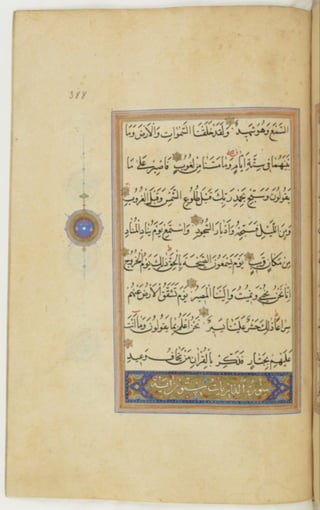 ٣٨٨
السمع وهو شهيد ولقد خلقنا السموات والارض وما
بينهما في ستة ايام وما مسنا من لغوب فاصبر على ما
يقولون وسبح بحمد ربك قبل طلوع الشمس وقبل الغروب
ومن الليل فسبحه وادبار السجود واستمع يوم يناد المناد
من مكان قريب يوم يسمعون الصيحة بالحق ذلك يوم الخروج
انا نحن نحيي ونميت والينا المصير يوم تشقق الارض عنهم
سراعا ذلك حشر علينا يسير نحن اعلم بما يقولون وما انت
عليهم بجبار فذكر بالقران من يخاف وعيد
سورة الذاريات ستون اية